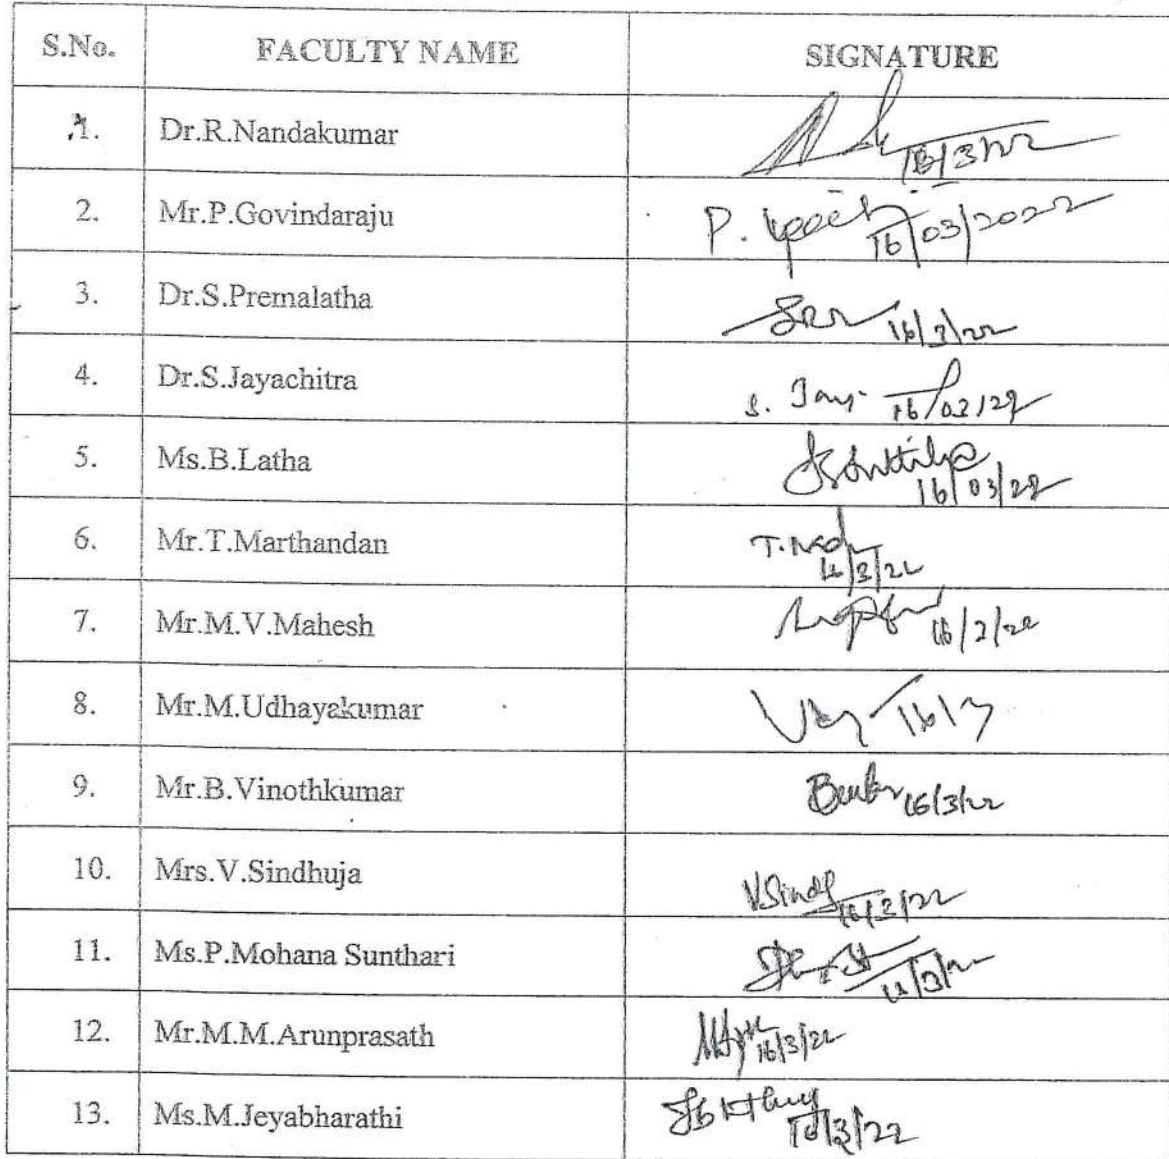 S.No. FACULTY NAME SIGNATURE
1. Dr.R.Nandakumar
2. Mr.P.Govindaraju P. 16/03/2022
3. Dr.S.Premalatha 16/3/22
4. Dr.S.Jayachitra S. Jay 16/03/22
5. Ms.B.Latha 16/03/22
6. Mr.T.Marthandan
7. Mr.M.V.Mahesh
8. Mr.M.Udhayakumar 16/3
9. Mr.B.Vinothkumar 16/3/22
10. Mrs.V.Sindhuja V.Sindh 16/3/22
11. Ms.P.Mohana Sunthari
12. Mr.M.M.Arunprasath 16/3/22
13. Ms.M.Jeyabharathi 16/3/22